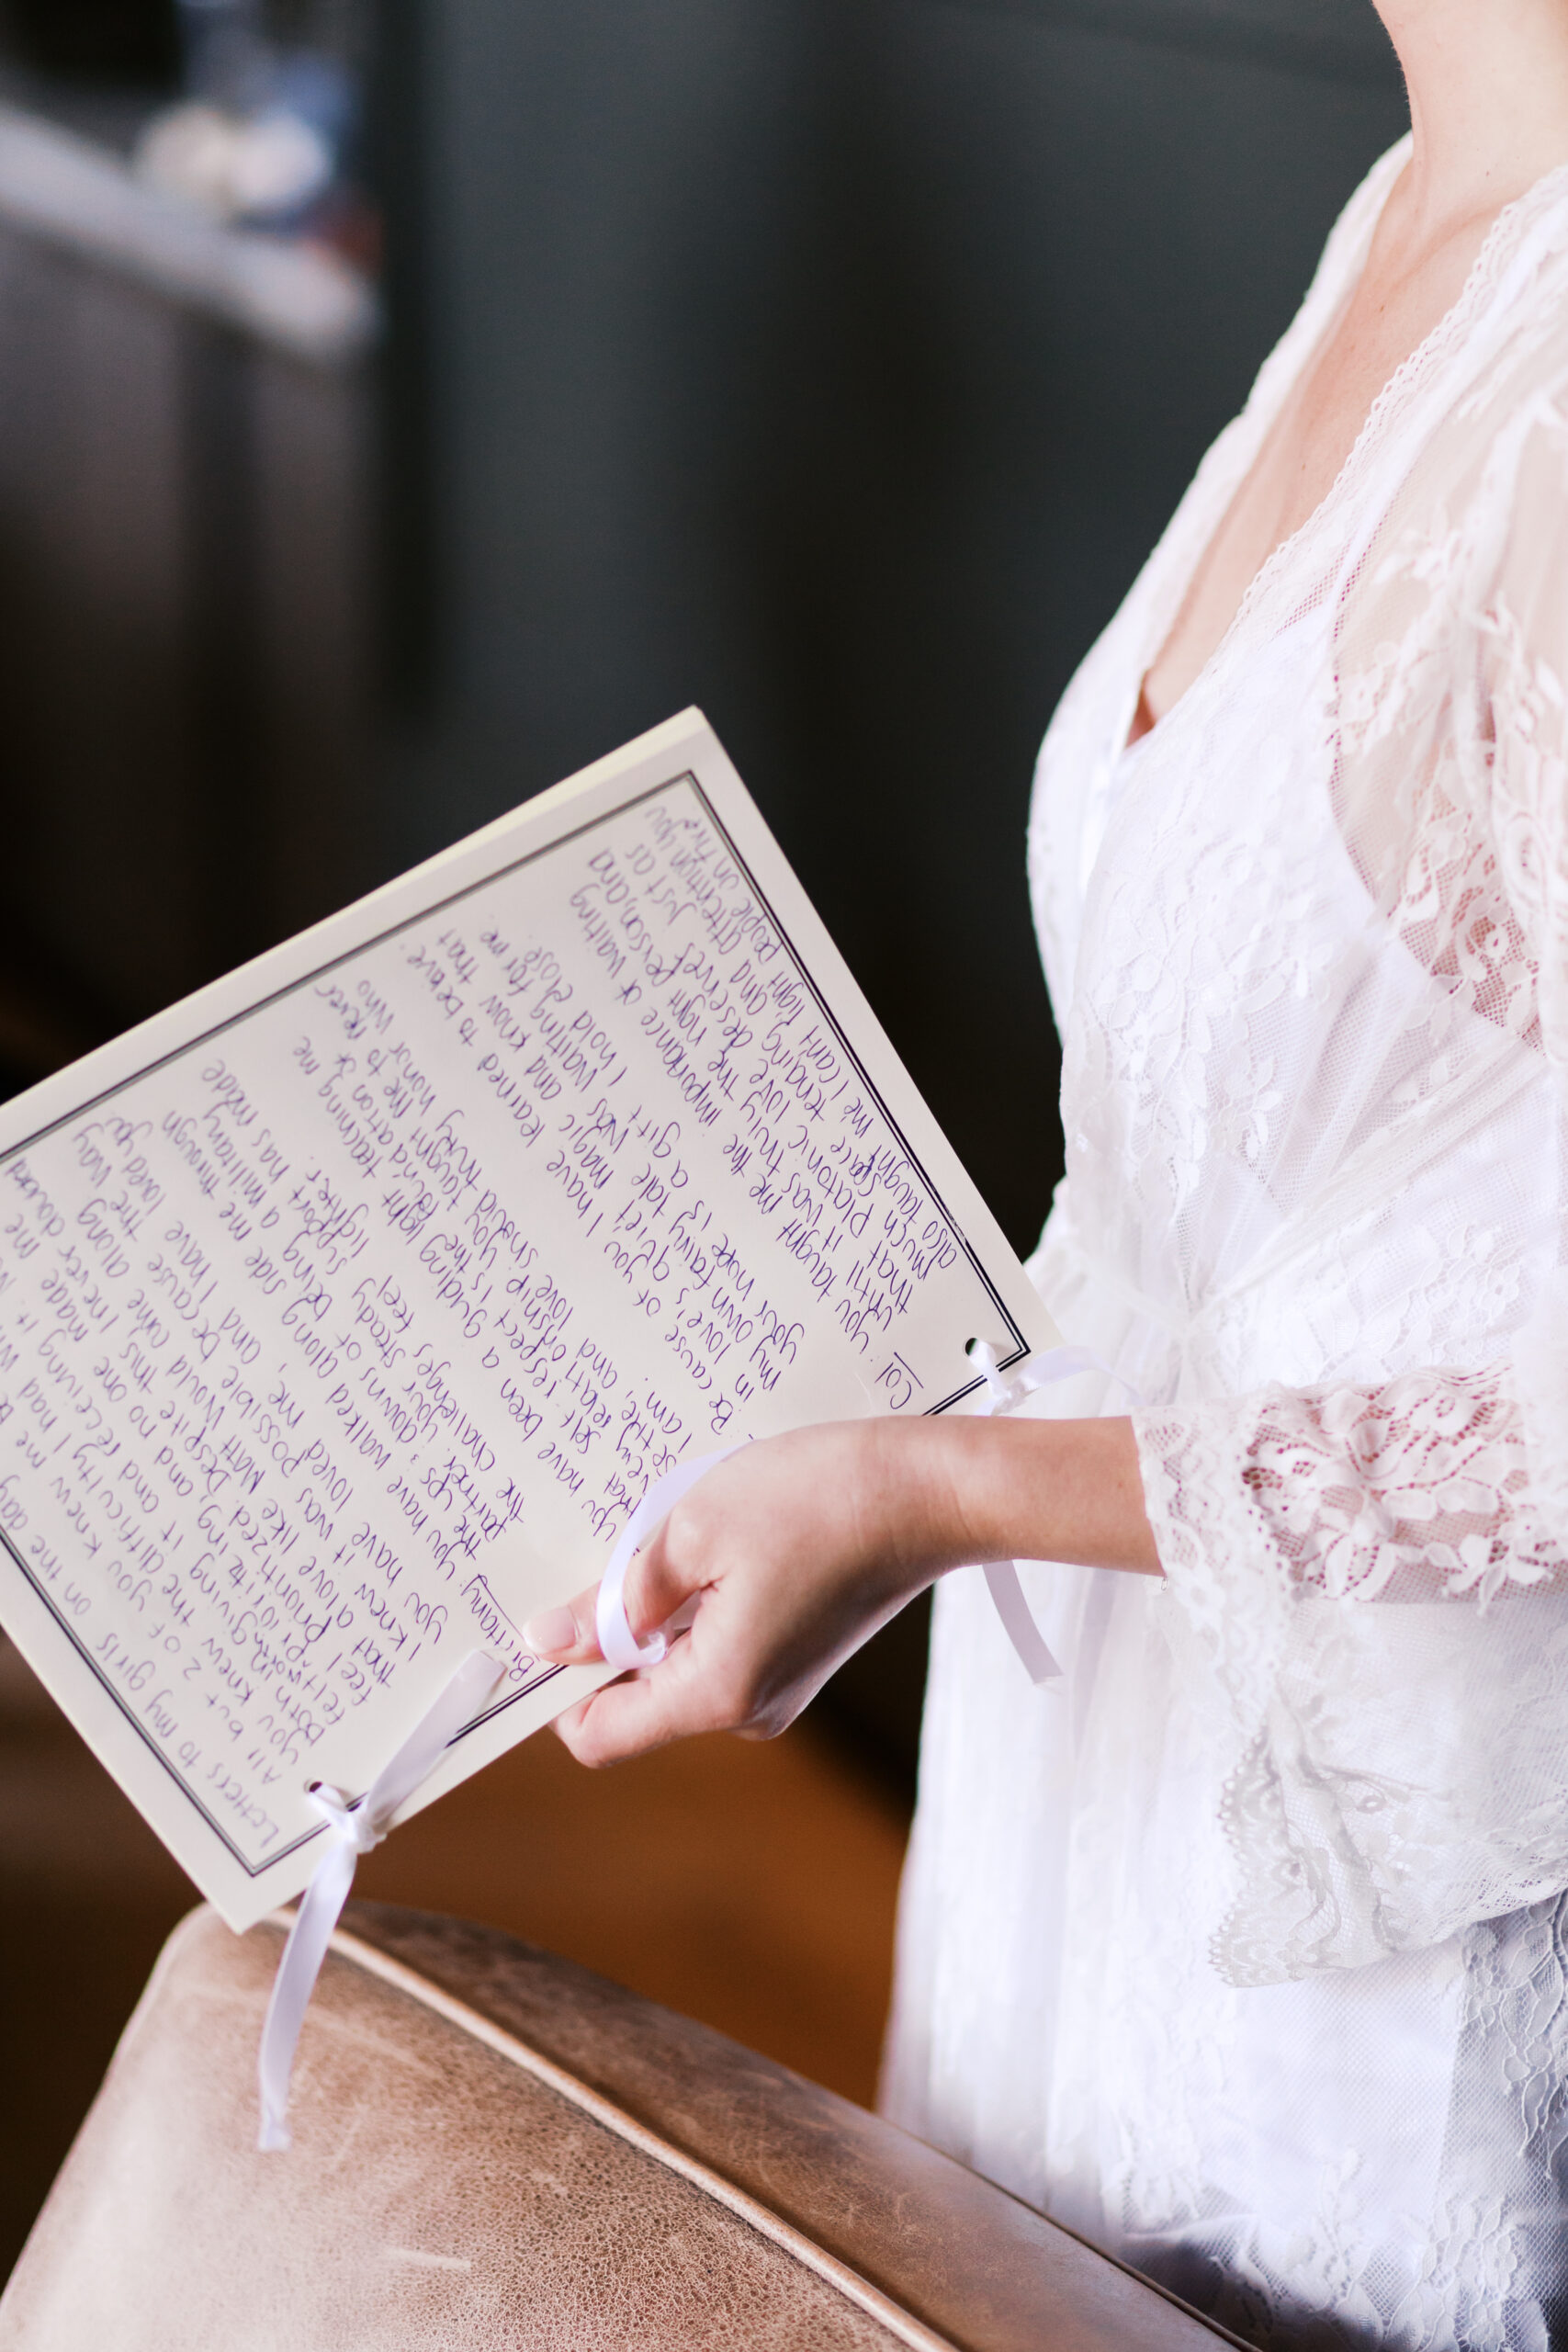 Letters to my girls on the day
All but 2 of you knew me
you knew the difficulty I had w
Both in giving it and receiving it.
Felt worthy and no one made me
Feel prioritized. Despite this I never doubted
that a love like Matt would come along the way
I knew it was possible because the
you have loved me, and I have loved you
Brittany you have walked along side me through
the ups & downs of being a military
partner. your steady support has made
the challenges feel lighter
you have been a guiding light teaching me
that self respect is the found atron &
every relationship. you taught me to never
settle, and love should truly honor who
I am.
Because of you I have learned to behave
in love's magic and know that
my own fairy tale was waiting for me.
your hope is a gift I hold close.
Cal you taught me the importance of waiting
until it was truly the right person, and
that platonic love deserves just as
much space tending, and attention you
also taught me I can light people on fire